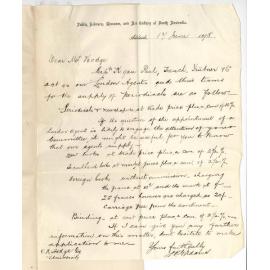 Public Library, Museum, and Art Gallery of South Australia.
Adelaide 1st June 1898
Dear Mr Hodge
Kegan Paul, Trench, Trübner & Co
act as our London Agents and their terms
for the supply of Periodicals are as follow
Periodicals & news at trade price plus a com of
If the question of the appointment of a
London agent is likely to engage the attention of your
Committee, it might be useful for you to know
that our agents supply
New books at trade price plus a com of
Secondhand books at market prices plus a com of
Foreign books without commission, charging
the franc at and the mark at for
20 francs however are charged as
Carriage free from the continent.
Binding at cost price plus a com of
If I can give you any further
information on this matter, dont hesitate to make
application to me
Yours faithfully
C R Hodge Esq
University